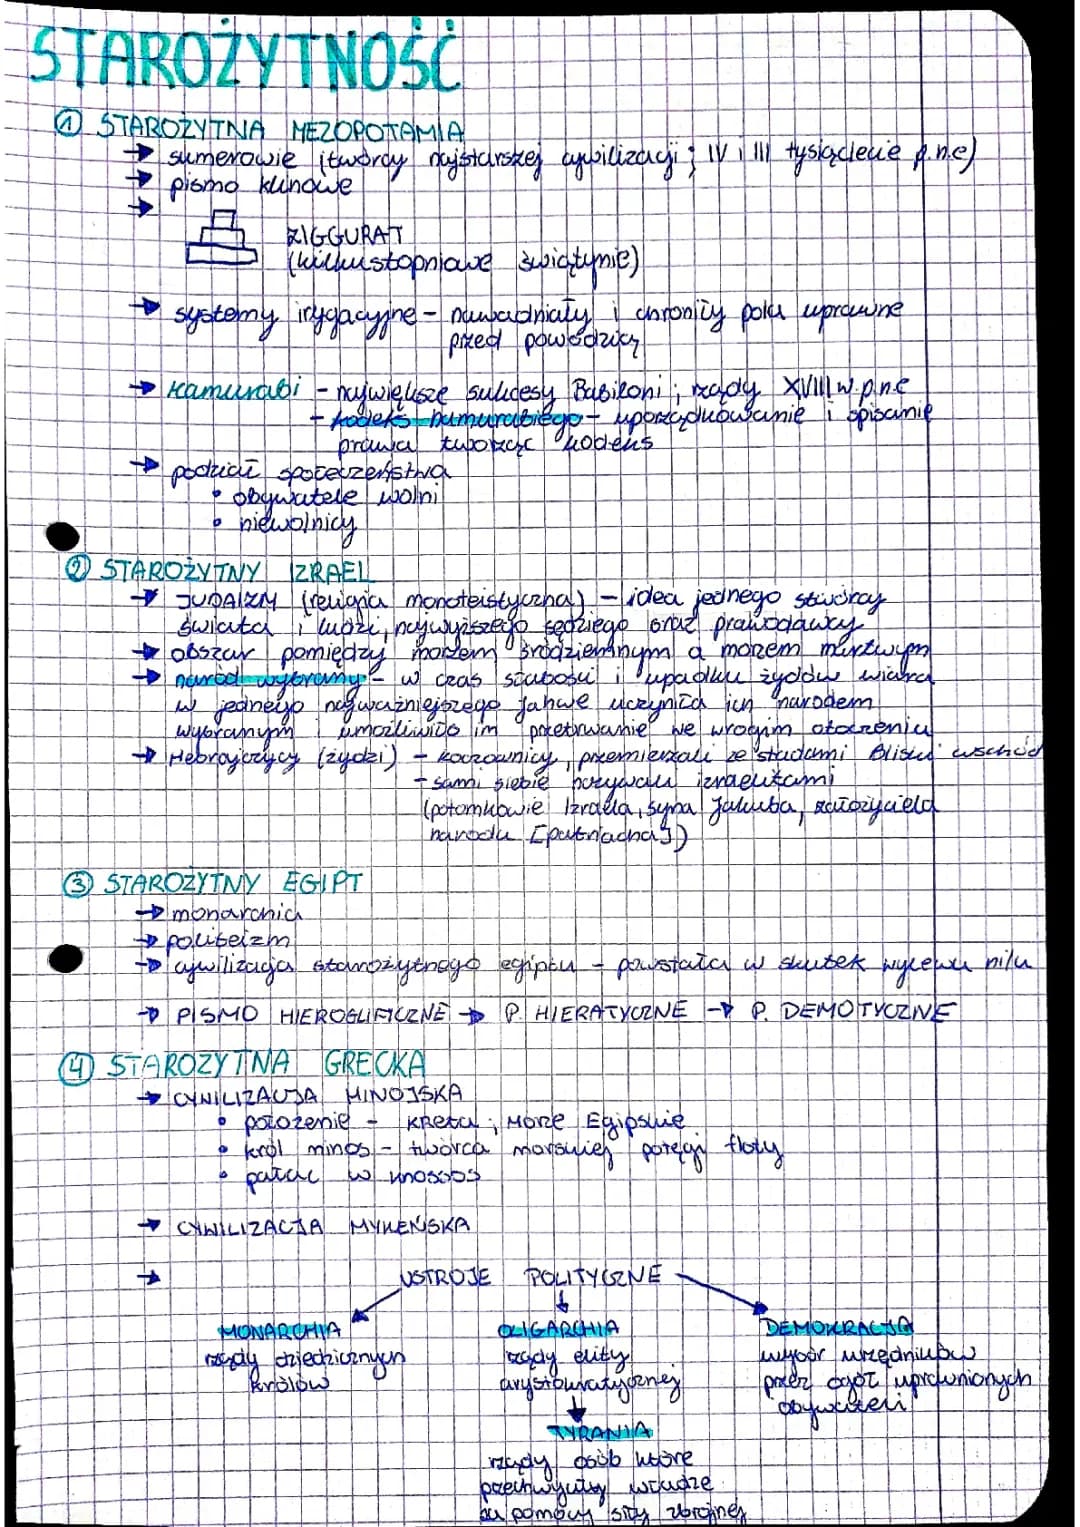 STAROŻYTNOŚĆ
① STAROŻYTNA MEZOPOTAMIA
→ sumerowie (twórcy najstarszej cywilizacji ; IV i III tysiąclecie p.n.e)
→ pismo klinowe
→
ZIGGURAT
(kilkustopniowe świątynie)
→ systemy irygacyjne - nawadniały i chroniły pola uprawne
przed powodzią
→ Hamurabi - największe sukcesy Babiloni ; rządy XVIII w.p.n.e
- kodeks hamurabiego - uporządkowanie i spisanie
prawa tworząc kodeks
→ podział społeczeństwa
• obywatele wolni
• niewolnicy
② STAROŻYTNY IZRAEL
→ JUDAIZM (religia monoteistyczna) - idea jednego stwórcy
świata i ludzi, najwyższego sędziego oraz prawodawcy
→ obszar pomiędzy morzem śródziemnym a morzem martwym
→ naród wybrany - w czas słabości i upadku żydów wiara
w jednego najważniejszego Jahwe uczyniła ich narodem
wybranym i umożliwiło im przetrwanie we wrogim otoczeniu
→ Hebrajczycy (żydzi) - koczownicy, przemierzali ze stadami bliski wschód
- sami siebie nazywali izraelitami
(potomkowie Izraela, syna Jakuba, założyciela
narodu [patriarcha])
③ STAROŻYTNY EGIPT
→ monarchia
→ politeizm
→ cywilizacja starożytnego egiptu - powstała w skutek wylewu nilu
→ PISMO HIEROGLIFICZNE → P. HIERATYCZNE → P. DEMOTYCZNE
④ STAROZYTNA GRECKA
→ CYWILIZACJA MINOJSKA
• położenie - Kreta ; Morze Egipskie
• król minos - twórca morskiej potęgi floty
• pałac w knossos
→ CYWILIZACJA MYKEŃSKA
→ USTROJE POLITYCZNE
MONARCHIA OLIGARCHIA DEMOKRACJA
rządy dziedzicznych rządy elity wybór urzędników
królów arystokratycznej przez ogół uprawnionych
obywateli
TYRANIA
rządy osób które
przechwyciły władze
za pomocy siły zbrojnej